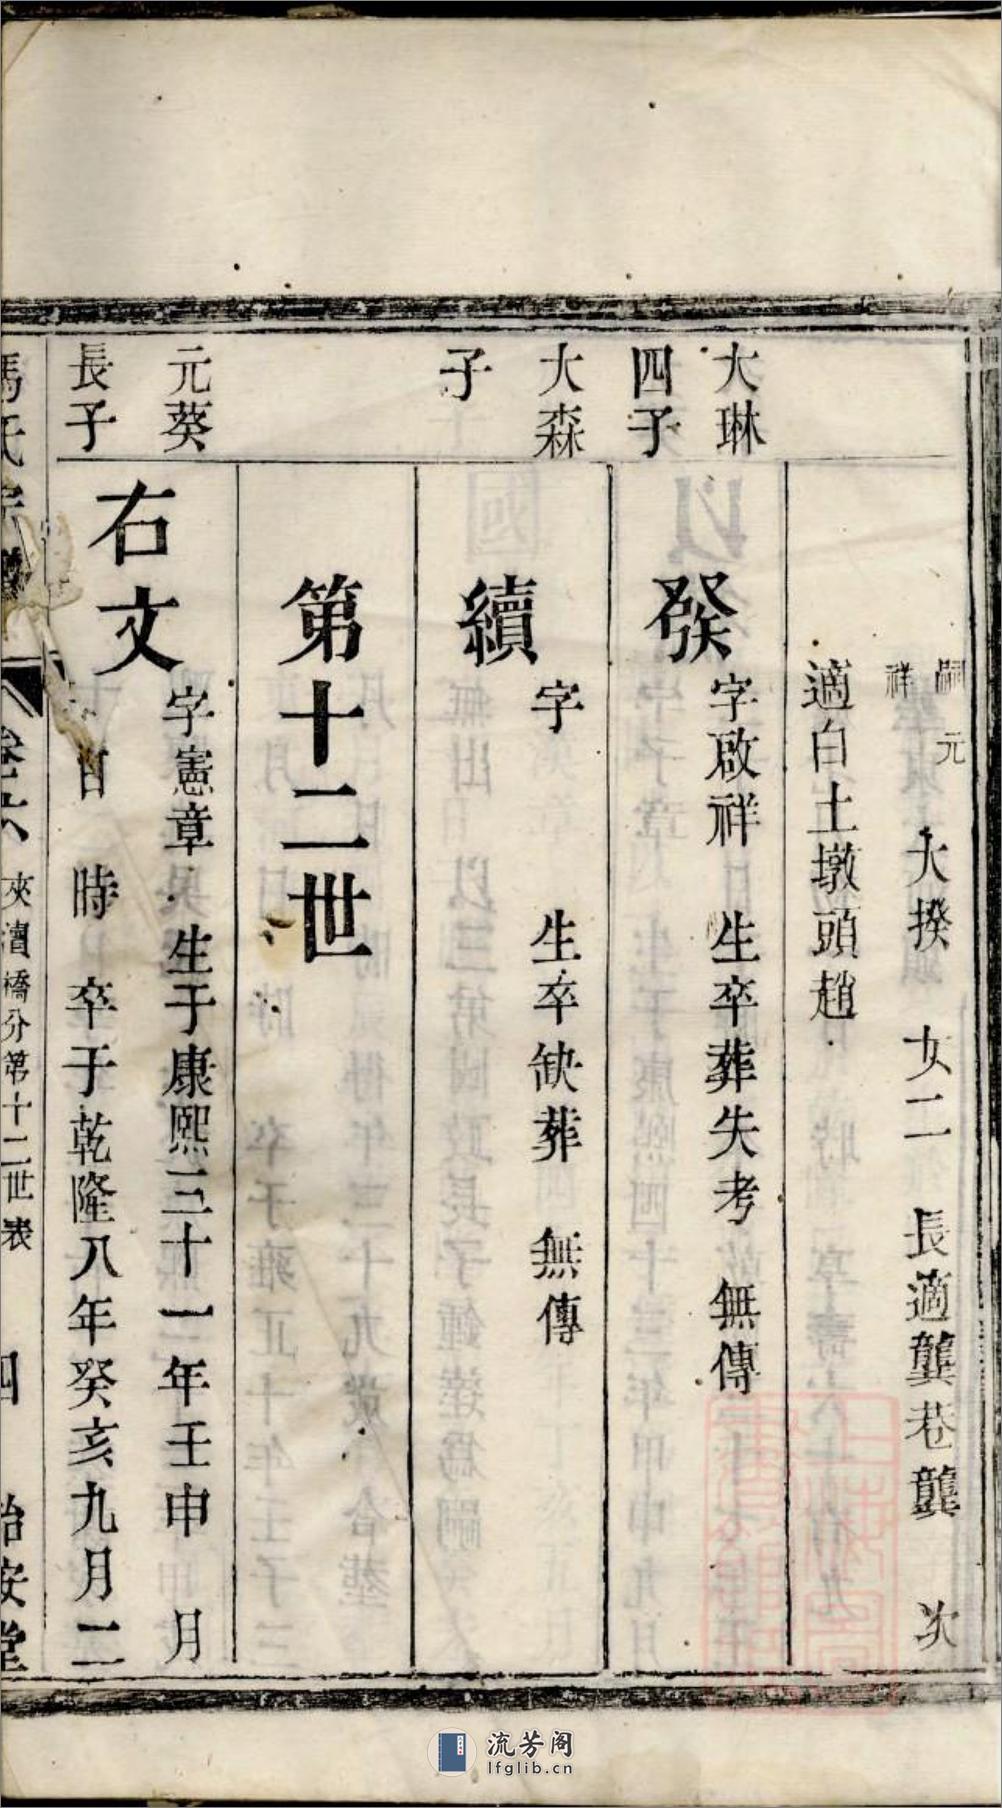 嗣元
祥
大揆　女二　長適龔巷龔　次
適白土墩頭趙
大琳
四子
發
字啟祥　生卒葬失考　無傳
大森
子
續
字　生卒缺葬　無傳
第十二世
元葵
長子
右文
字憲章　生于康熙三十一年壬申　月
日　時　卒于乾隆八年癸亥九月二
馮氏宗譜
卷六　夾漕橋分第十二世表　四
流芳阁
lfglib.cn